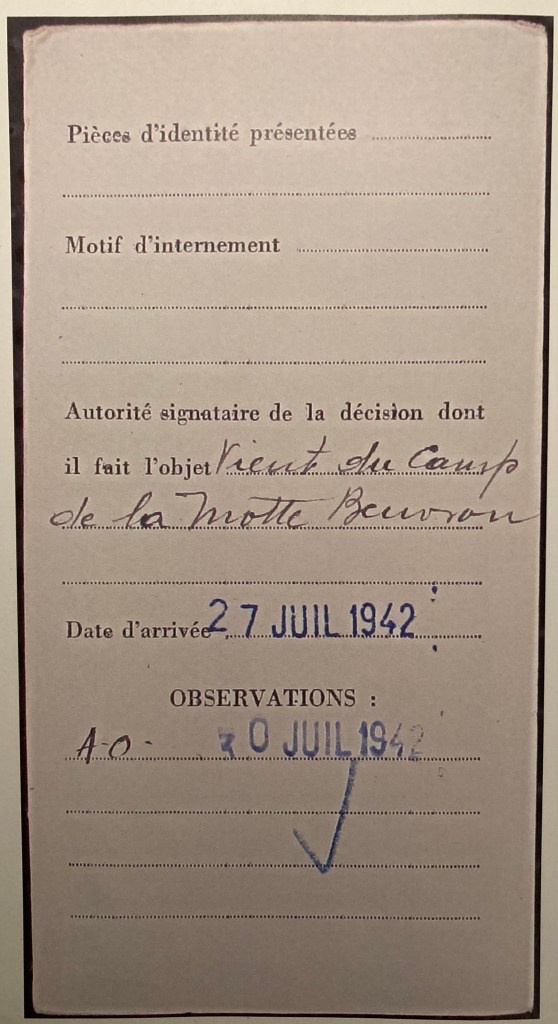 Pièces d'identité présentées
Motif d'internement
Autorité signataire de la décision dont
il fait l'objet Vient du Camp
de la Motte Beuvron
Date d'arrivée 27 JUIL 1942
OBSERVATIONS :
A-O- 30 JUIL 1942